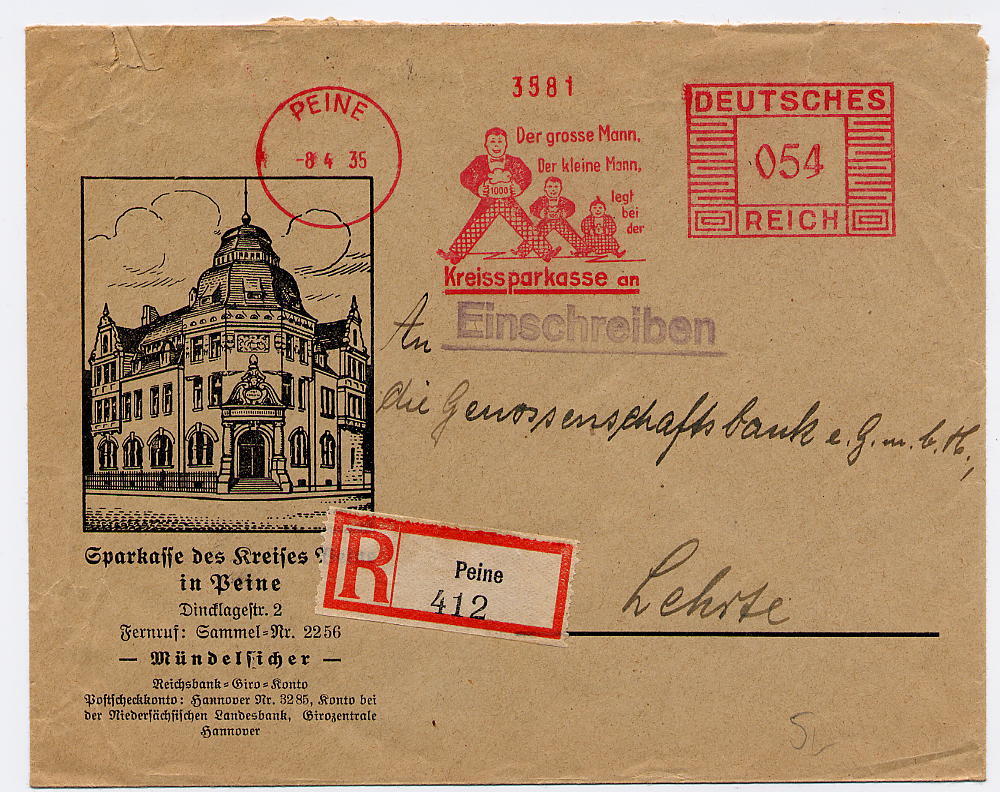 3581
PEINE
-8 4 35
Der grosse Mann,
Der kleine Mann,
legt
bei
der
Kreissparkasse an
1000
DEUTSCHES
054
REICH
Einschreiben
An
die Genossenschaftsbank e.G.m.b.H.,
Lehrte
R
Peine
412
Sparkasse des Kreises
in Peine
Dincklagestr. 2
Fernruf: Sammel-Nr. 2256
— Mündelsicher —
Reichsbank-Giro-Konto
Postscheckkonto: Hannover Nr. 3285, Konto bei
der Niedersächsischen Landesbank, Girozentrale
Hannover